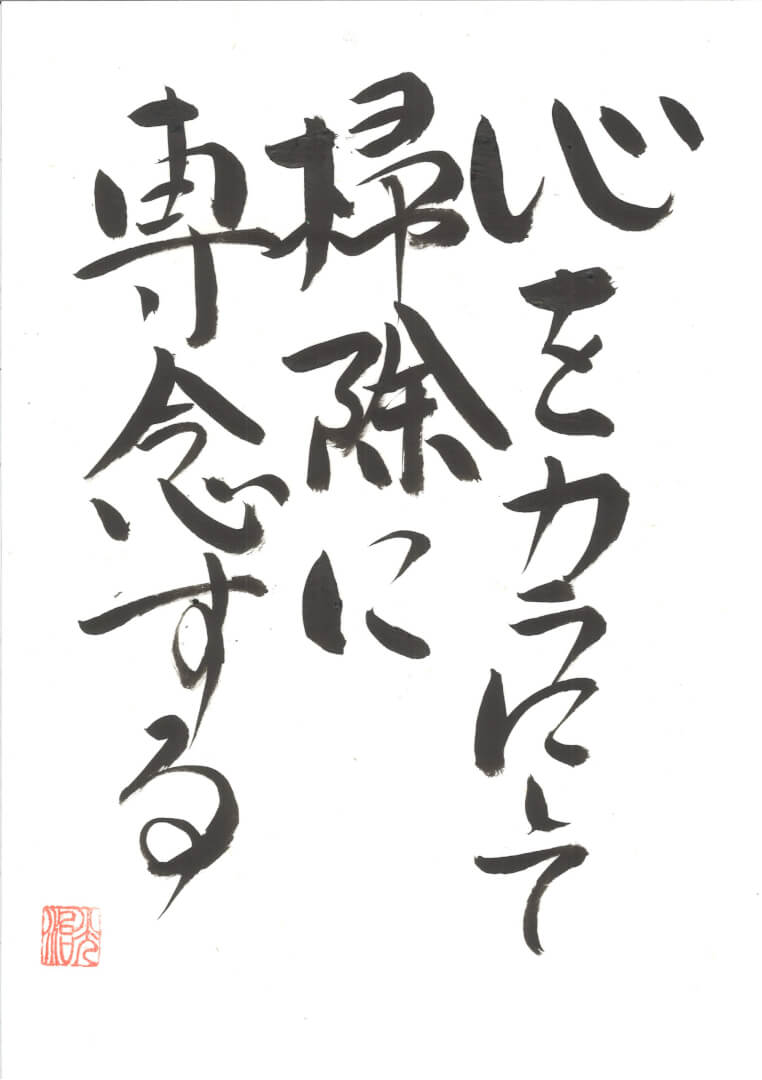 心をカラにして
掃除に
専念する